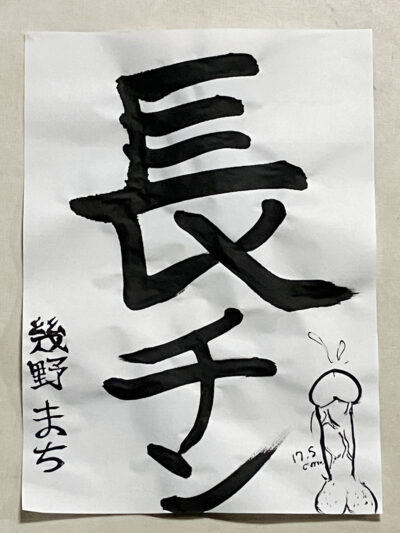 長チン
幾野まち
17.5
cm